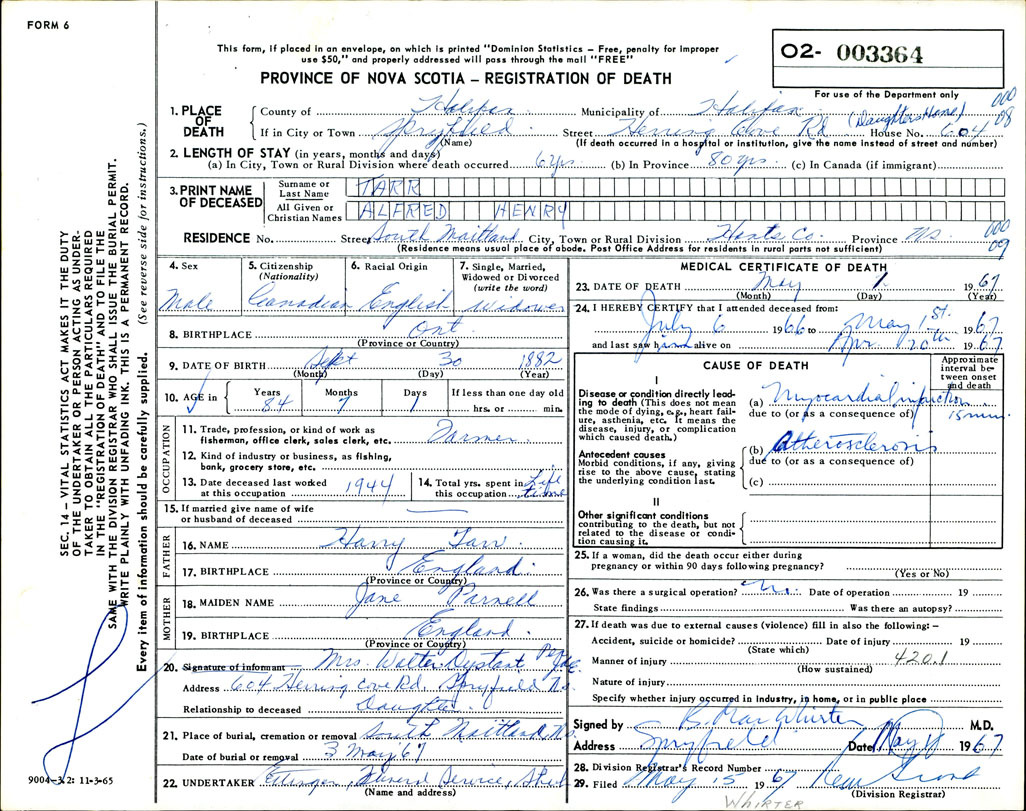 FORM 6
This form, if placed in an envelope, on which is printed "Dominion Statistics – Free, penalty for improper
use $50," and properly addressed will pass through the mail "FREE"
PROVINCE OF NOVA SCOTIA – REGISTRATION OF DEATH
O2- 003364
For use of the Department only
000
08
1. PLACE OF DEATH
County of Halifax Municipality of Halifax (Daughters Home)
If in City or Town Spryfield Street Herring Cove Rd House No. 604
(Name) (If death occurred in a hospital or institution, give the name instead of street and number)
2. LENGTH OF STAY (in years, months and days)
(a) In City, Town or Rural Division where death occurred 6 yrs (b) In Province 80 yrs (c) In Canada (if immigrant)
3. PRINT NAME OF DECEASED
Surname or Last Name TARR
All Given or Christian Names ALFRED HENRY
000
09
RESIDENCE No. Street South Maitland City, Town or Rural Division Hants Co. Province N.S.
(Residence means usual place of abode. Post Office Address for residents in rural parts not sufficient)
4. Sex Male
5. Citizenship (Nationality) Canadian
6. Racial Origin English
7. Single, Married, Widowed or Divorced (write the word) widower
8. BIRTHPLACE Ont
(Province or Country)
9. DATE OF BIRTH Sept 30 1882
(Month) (Day) (Year)
10. AGE in Years 84 Months 7 Days 1 If less than one day old
hrs. or min.
OCCUPATION
11. Trade, profession, or kind of work as
fisherman, office clerk, sales clerk, etc. Farmer
12. Kind of industry or business, as fishing,
bank, grocery store, etc.
13. Date deceased last worked at this occupation 1944
14. Total yrs. spent in this occupation Life time
15. If married give name of wife
or husband of deceased —
FATHER
16. NAME Harry Tarr
17. BIRTHPLACE England
(Province or Country)
MOTHER
18. MAIDEN NAME Jane Parnell
19. BIRTHPLACE England
(Province or Country)
20. Signature of informant Mrs. Walter Dystant
Address 604 Herring Cove Rd Spryfield N.S.
Relationship to deceased Daughter
21. Place of burial, cremation or removal South Maitland, N.S.
Date of burial or removal 3 May 67
22. UNDERTAKER Ettinger Funeral Service,
(Name and address)
MEDICAL CERTIFICATE OF DEATH
23. DATE OF DEATH May 1 1967
(Month) (Day) (Year)
24. I HEREBY CERTIFY that I attended deceased from:
July 6 1966 to May 1st. 1967
and last saw him alive on Apr. 20th 1967
CAUSE OF DEATH
Approximate interval between onset and death
I
Disease or condition directly leading to death (This does not mean the mode of dying, e.g., heart failure, asthenia, etc. It means the disease, injury, or complication which caused death.)
(a) Myocardial infarction 15 min.
due to (or as a consequence of)
Antecedent causes
Morbid conditions, if any, giving rise to the above cause, stating the underlying condition last.
(b) Atherosclerosis
due to (or as a consequence of)
(c)
II
Other significant conditions
contributing to the death, but not related to the disease or condition causing it.
25. If a woman, did the death occur either during
pregnancy or within 90 days following pregnancy?
(Yes or No)
26. Was there a surgical operation? No Date of operation 19
State findings Was there an autopsy?
27. If death was due to external causes (violence) fill in also the following:–
Accident, suicide or homicide? Date of injury 19
(State which)
Manner of injury 420.1
(How sustained)
Nature of injury
Specify whether injury occurred in industry, in home, or in public place
Signed by B. MacWhirter M.D.
Address Spryfield Date May 1967
28. Division Registrar's Record Number
29. Filed May 15 1967
(Division Registrar)
WHIRTER
SEC. 14 – VITAL STATISTICS ACT MAKES IT THE DUTY
OF THE UNDERTAKER OR PERSON ACTING AS UNDER-
TAKER TO OBTAIN ALL THE PARTICULARS REQUIRED
IN THE "REGISTRATION OF DEATH" AND TO FILE THE
SAME WITH THE DIVISION REGISTRAR WHO SHALL ISSUE THE BURIAL PERMIT.
WRITE PLAINLY WITH UNFADING INK. THIS IS A PERMANENT RECORD.
Every item of information should be carefully supplied. (See reverse side for instructions.)
9004-3.2: 11-3-65